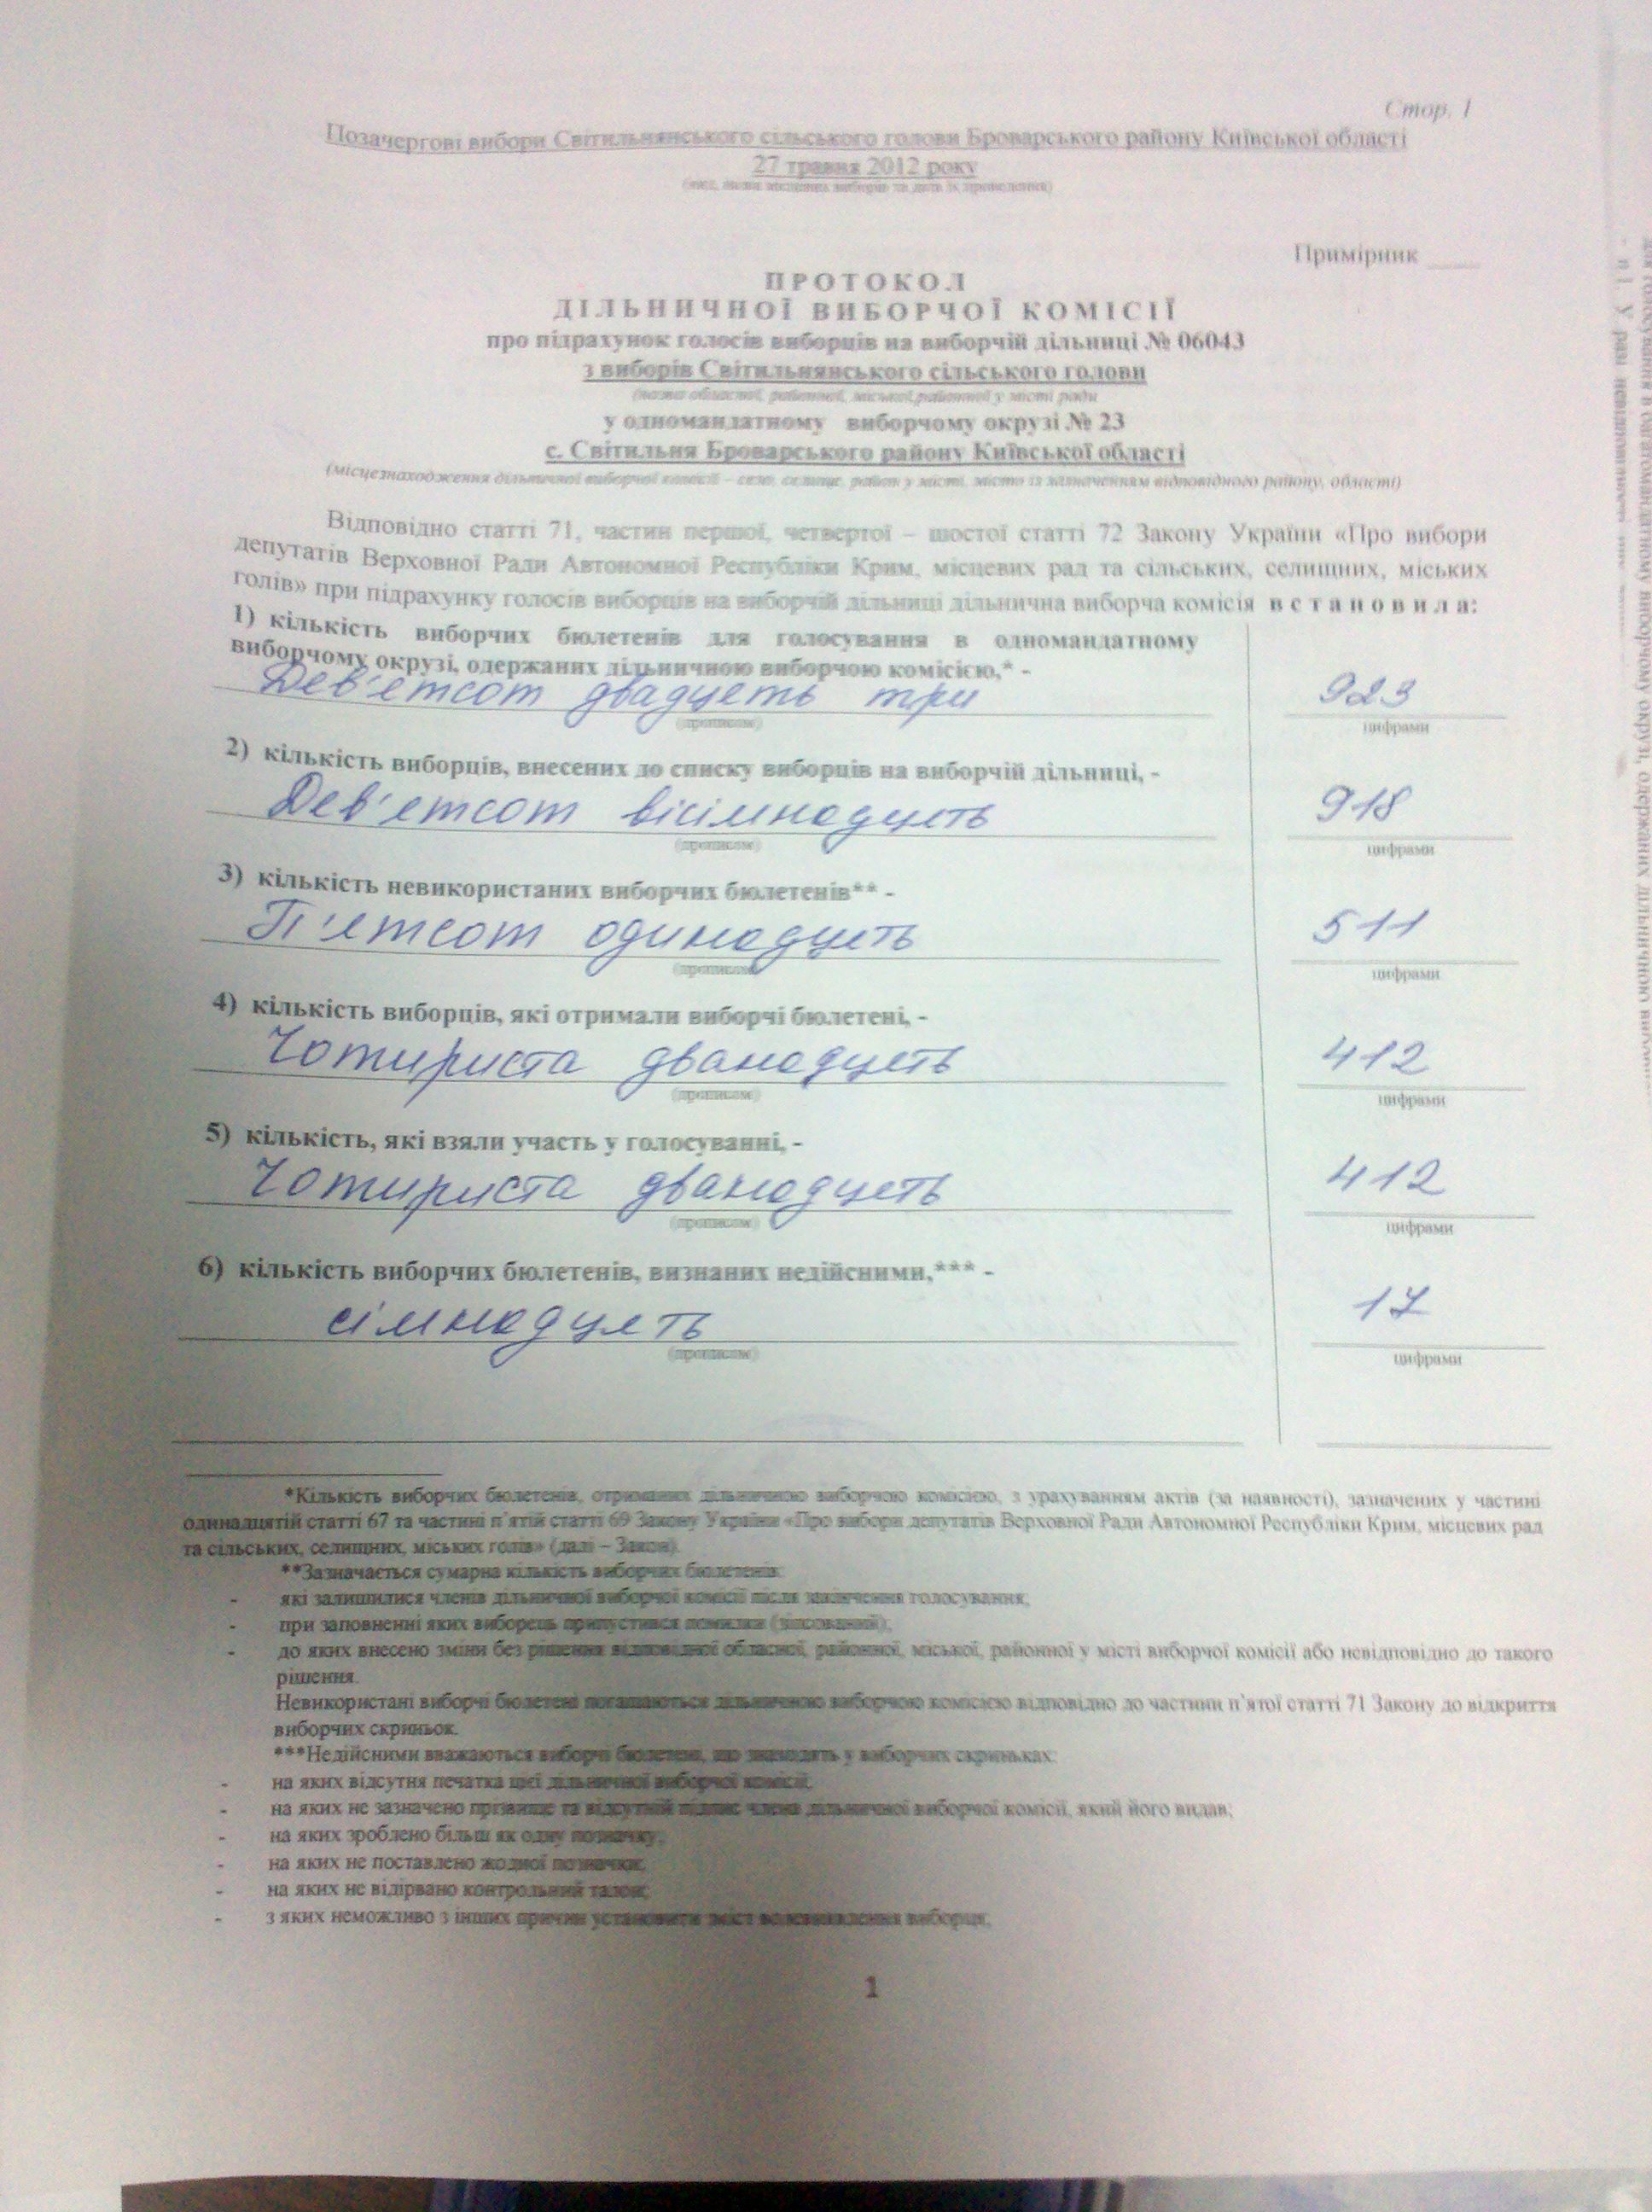 Стор. 1
Позачергові вибори Світильнянського сільського голови Броварського району Київської області
27 травня 2012 року
Примірник ____
ПРОТОКОЛ
ДІЛЬНИЧНОЇ ВИБОРЧОЇ КОМІСІЇ
про підрахунок голосів виборців на виборчій дільниці № 06043
з виборів Світильнянського сільського голови
у одномандатному виборчому окрузі № 23
с. Світильня Броварського району Київської області
(місцезнаходження дільничної виборчої комісії – село, селище, район у місті, місто із зазначенням відповідного району, області)
Відповідно статті 71, частин першої, четвертої – шостої статті 72 Закону України «Про вибори
депутатів Верховної Ради Автономної Республіки Крим, місцевих рад та сільських, селищних, міських
голів» при підрахунку голосів виборців на виборчій дільниці дільнична виборча комісія встановила:
1) кількість виборчих бюлетенів для голосування в одномандатному
виборчому окрузі, одержаних дільничною виборчою комісією,* -
Дев'етсот двадцеть три 923
(прописом) цифрами
2) кількість виборців, внесених до списку виборців на виборчій дільниці, -
Дев'етсот вісімнадцеть 918
(прописом) цифрами
3) кількість невикористаних виборчих бюлетенів** -
П'етсот одинадцеть 511
(прописом) цифрами
4) кількість виборців, які отримали виборчі бюлетені, -
Чотириста дванадцеть 412
(прописом) цифрами
5) кількість, які взяли участь у голосуванні, -
Чотириста дванадцеть 412
(прописом) цифрами
6) кількість виборчих бюлетенів, визнаних недійсними,*** -
сімнадцеть 17
(прописом) цифрами
*Кількість виборчих бюлетенів, отриманих дільничною виборчою комісією, з урахуванням актів (за наявності), зазначених у частині
одинадцятій статті 67 та частині п'ятій статті 69 Закону України «Про вибори депутатів Верховної Ради Автономної Республіки Крим, місцевих рад
та сільських, селищних, міських голів» (далі – Закон).
**Зазначається сумарна кількість виборчих бюлетенів:
- які залишилися членів дільничної виборчої комісії після закінчення голосування;
- при заповненні яких виборець припустився помилки
- до яких внесено зміни без рішення відповідної обласної, районної, міської, районної у місті виборчої комісії або невідповідно до такого
рішення.
Невикористані виборчі бюлетені погашаються дільничною виборчою комісією відповідно до частини п'ятої статті 71 Закону до відкриття
виборчих скриньок.
***Недійсними вважаються виборчі бюлетені, що знаходять у виборчих скриньках:
- на яких відсутня печатка цієї дільничної виборчої комісії;
- на яких не зазначено прізвище та відсутній підпис члена дільничної виборчої комісії, який його видав;
- на яких зроблено більш як одну позначку;
- на яких не поставлено жодної позначки;
- на яких не відірвано контрольний талон;
- з яких неможливо з інших причин установити зміст волевиявлення виборця.
1